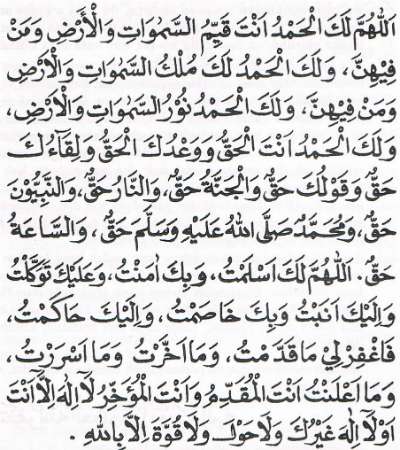 اَللّٰهُمَّ لَكَ الْحَمْدُ اَنْتَ قَيِّمُ السَّمٰوَاتِ وَالْاَرْضِ وَمَنْ
فِيْهِنَّ، وَلَكَ الْحَمْدُ لَكَ مُلْكُ السَّمٰوَاتِ وَالْاَرْضِ
وَمَنْ فِيْهِنَّ، وَلَكَ الْحَمْدُ نُوْرُ السَّمٰوَاتِ وَالْاَرْضِ،
وَلَكَ الْحَمْدُ اَنْتَ الْحَقُّ وَوَعْدُكَ الْحَقُّ وَلِقَاۤءُكَ
حَقٌّ وَقَوْلُكَ حَقٌّ وَالْجَنَّةُ حَقٌّ، وَالنَّارُ حَقٌّ، وَالنَّبِيُّوْنَ
حَقٌّ، وَمُحَمَّدٌ صَلَّى اللهُ عَلَيْهِ وَسَلَّمَ حَقٌّ، وَالسَّاعَةُ
حَقٌّ. اَللّٰهُمَّ لَكَ اَسْلَمْتُ، وَبِكَ اٰمَنْتُ، وَعَلَيْكَ تَوَكَّلْتُ
وَاِلَيْكَ اَنَبْتُ وَبِكَ خَاصَمْتُ، وَاِلَيْكَ حَاكَمْتُ،
فَاغْفِرْلِيْ مَا قَدَّمْتُ، وَمَا اَخَّرْتُ وَمَا اَسْرَرْتُ،
وَمَا اَعْلَنْتُ اَنْتَ الْمُقَدِّمُ وَاَنْتَ الْمُؤَخِّرُ لَاۤ اِلٰهَ اِلَّاۤ اَنْتَ
اَوْلَاۤ اِلٰهَ غَيْرُكَ وَلَا حَوْلَ وَلَا قُوَّةَ اِلَّا بِاللهِ.